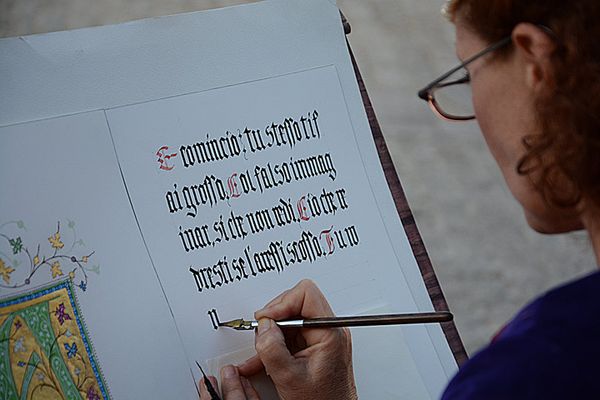 E comincio: tu stesso ti f
ai grosso, Col falso immag
inar, si che non vedi, Cio che ve
dresti se l avessi scosso, Tu no
n